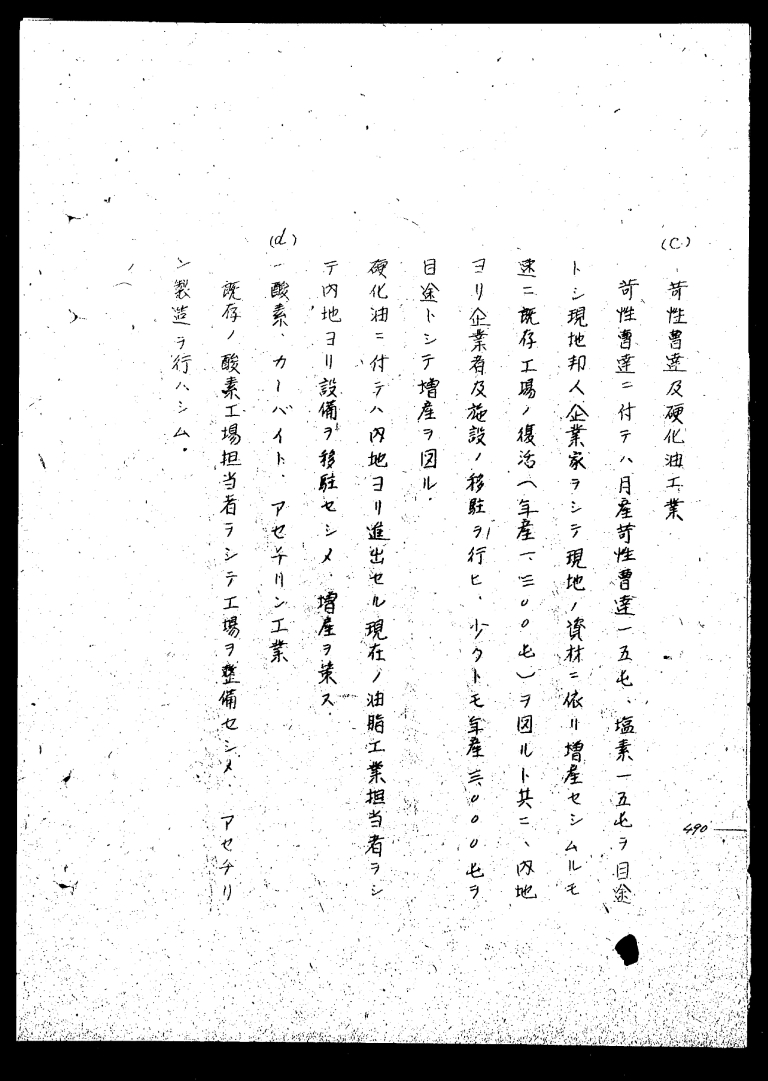 (c) 苛性曹達及硬化油工業
苛性曹達ニ付テハ月産苛性曹達一五屯、塩素一五屯ヲ目途
トシ現地邦人企業家ヲシテ現地ノ資材ニ依リ増産セシムルモ
速ニ既存工場ノ復活(年産一、三〇〇屯)ヲ図ルト共ニ、内地
ヨリ企業者及施設ノ移駐ヲ行ヒ、少クトモ年産三、〇〇〇屯ヲ
目途トシテ増産ヲ図ル.
硬化油ニ付テハ内地ヨリ進出セル現在ノ油脂工業担当者ヲシ
テ内地ヨリ設備ヲ移駐セシメ、増産ヲ策ス.
(d) 酸素、カーバイト、アセチリン工業
既存ノ酸素工場担当者ヲシテ工場ヲ整備セシメ、アセチリ
ン製造ヲ行ハシム.
490